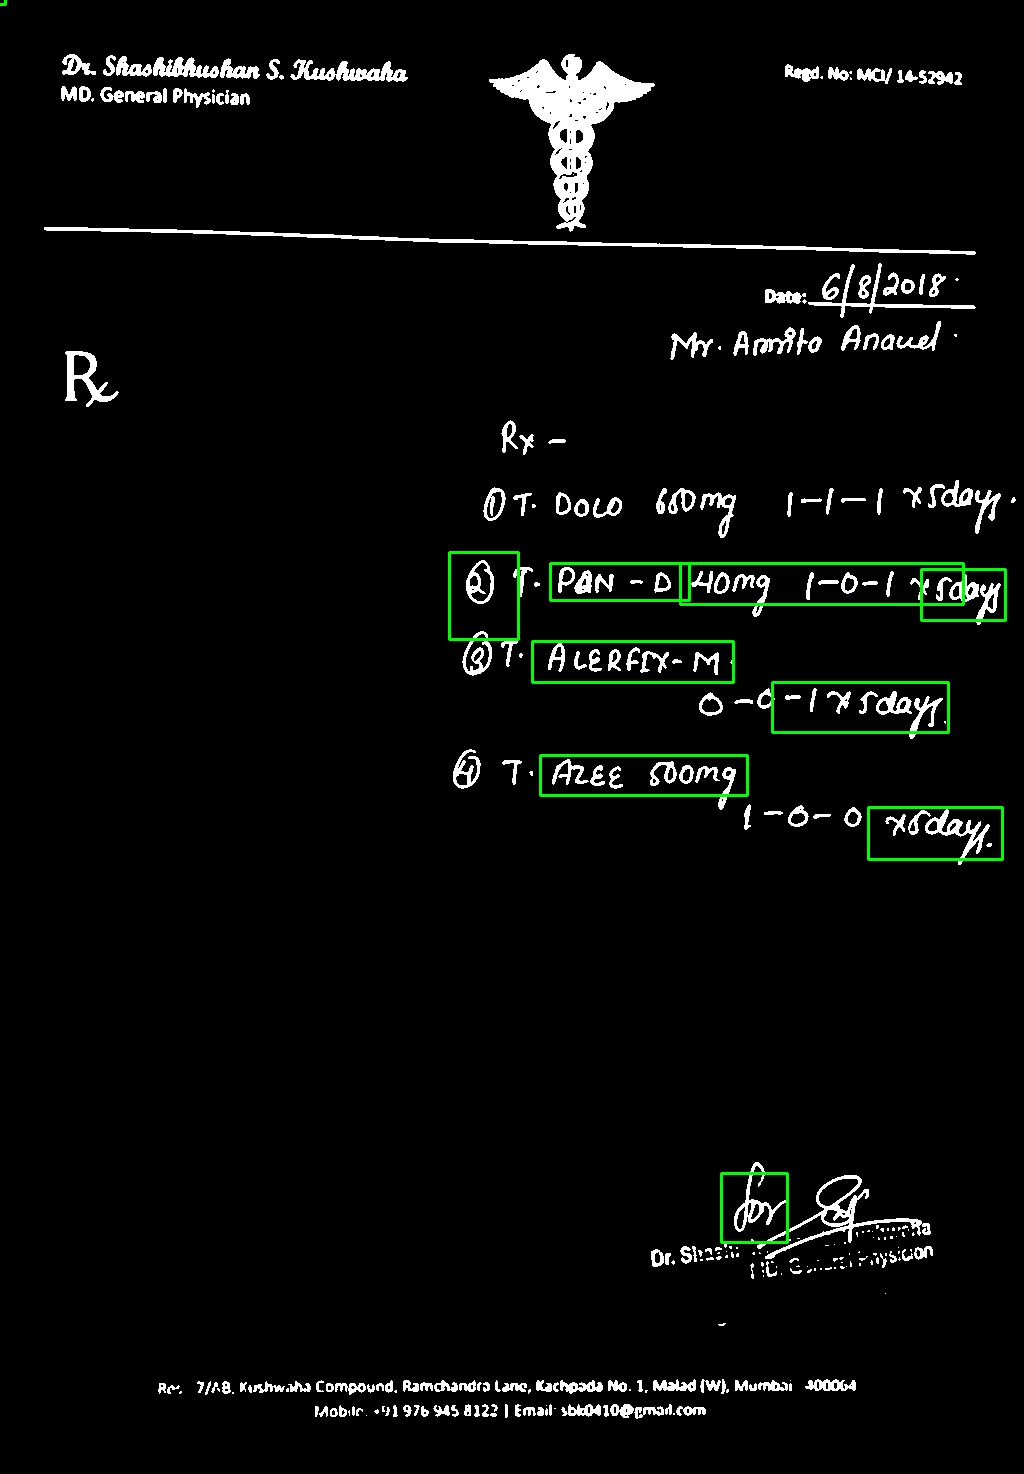 Dr. Shashibhushan S. Kushwaha
MD. General Physician
Regd. No: MCI/ 14-52942
Date: 6/8/2018
Mr. Amrita Anand
Rx
Rx -
① T. DOLO 650mg 1-1-1 x 5days.
② T. PAN - D 40mg 1-0-1 x 5days
③ T. ALERFIX - M.
0-0-1 x 5days.
④ T. AZEE 500mg
1-0-0 x5days.
for
Dr.
MD. General Physician
7/AB, Kushwaha Compound, Ramchandra Lane, Kachpada No. 1, Malad (W), Mumbai 400064
Mobile: +91 976 945 8122 | Email: sbk0410@gmail.com